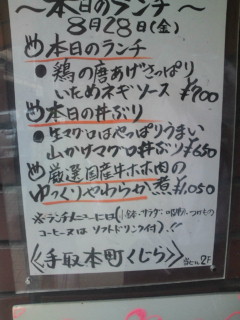 〜本日のランチ〜
8月28日(金)
㋱本日のランチ
●鶏の唐あげさっぱり
いためネギソース ¥700
㋱本日の丼ぶり
●生マグロはやっぱりうまい
山かけマグロ丼ぶり ¥650
㋱厳選国産牛ホホ肉の
ゆっくりやわらか煮 ¥1,050
※ランチメニューには(小鉢・サラダ・味噌汁・つけもの
コーヒー又はソフトドリンク付)!!
《手取本町くじら》 2F